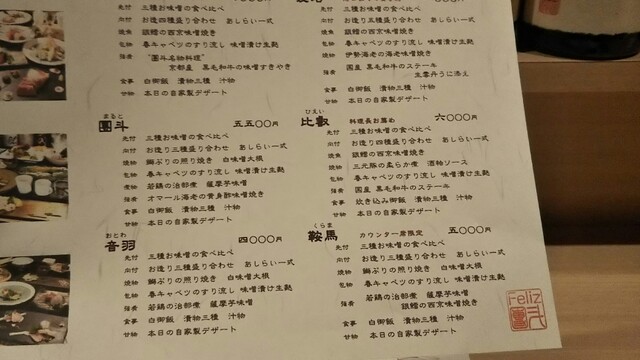 先付 三種お味噌の食べ比べ
向付 お造四種盛り合わせ あしらい一式
焼魚 銀鱈の西京味噌焼き
包物 春キャベツのすり流し 味噌漬け生麩
強肴 “圓斗名物料理”
京都産 黒毛和牛の味噌すきやき
食事 白御飯 漬物三種 汁物
甘物 本日の自家製デザート
まると
圓斗 五五〇〇円
先付 三種お味噌の食べ比べ
向付 お造り三種盛り合わせ あしらい一式
焼物 鰤ぶりの照り焼き 白味噌大根
包物 春キャベツのすり流し 味噌漬け生麩
煮物 若鶏の治部煮 薩摩芋味噌
強肴 オマール海老の黄身酢味噌焼き
食事 白御飯 漬物三種 汁物
甘物 本日の自家製デザート
おとわ
音羽 四〇〇〇円
先付 三種お味噌の食べ比べ
向付 お造り三種盛り合わせ あしらい一式
焼物 鰤ぶりの照り焼き 白味噌大根
包物 春キャベツのすり流し 味噌漬け生麩
強肴 若鶏の治部煮 薩摩芋味噌
食事 白御飯 漬物三種 汁物
甘物 本日の自家製デザート
先付 三種お味噌の食べ比べ
向付 お造五種盛り合わせ あしらい一式
包物 春キャベツのすり流し 味噌漬け生麩
焼物 伊勢海老の海老味噌焼き
強肴 国産 黒毛和牛のステーキ
生雲丹うに添え
食事 白御飯 漬物三種 汁物
甘物 本日の自家製デザート
ひえい
比叡 料理長お薦め 六〇〇〇円
先付 三種お味噌の食べ比べ
向付 お造り四種盛り合わせ あしらい一式
焼魚 銀鱈の西京味噌焼き
焼物 三元豚の柔らか煮 酒粕ソース
包物 春キャベツのすり流し 味噌漬け生麩
強肴 国産 黒毛和牛のステーキ
食事 炊き込み御飯 漬物三種 汁物
甘物 本日の自家製デザート
くらま
鞍馬 カウンター席限定 五〇〇〇円
先付 三種お味噌の食べ比べ
向付 お造り三種盛り合わせ あしらい一式
焼物 鰤ぶりの照り焼き 白味噌大根
包物 春キャベツのすり流し 味噌漬け生麩
強肴 若鶏の治部煮 薩摩芋味噌
銀鱈の西京味噌焼き
食事 白御飯 漬物三種 汁物
甘物 本日の自家製デザート
reliz
圓斗